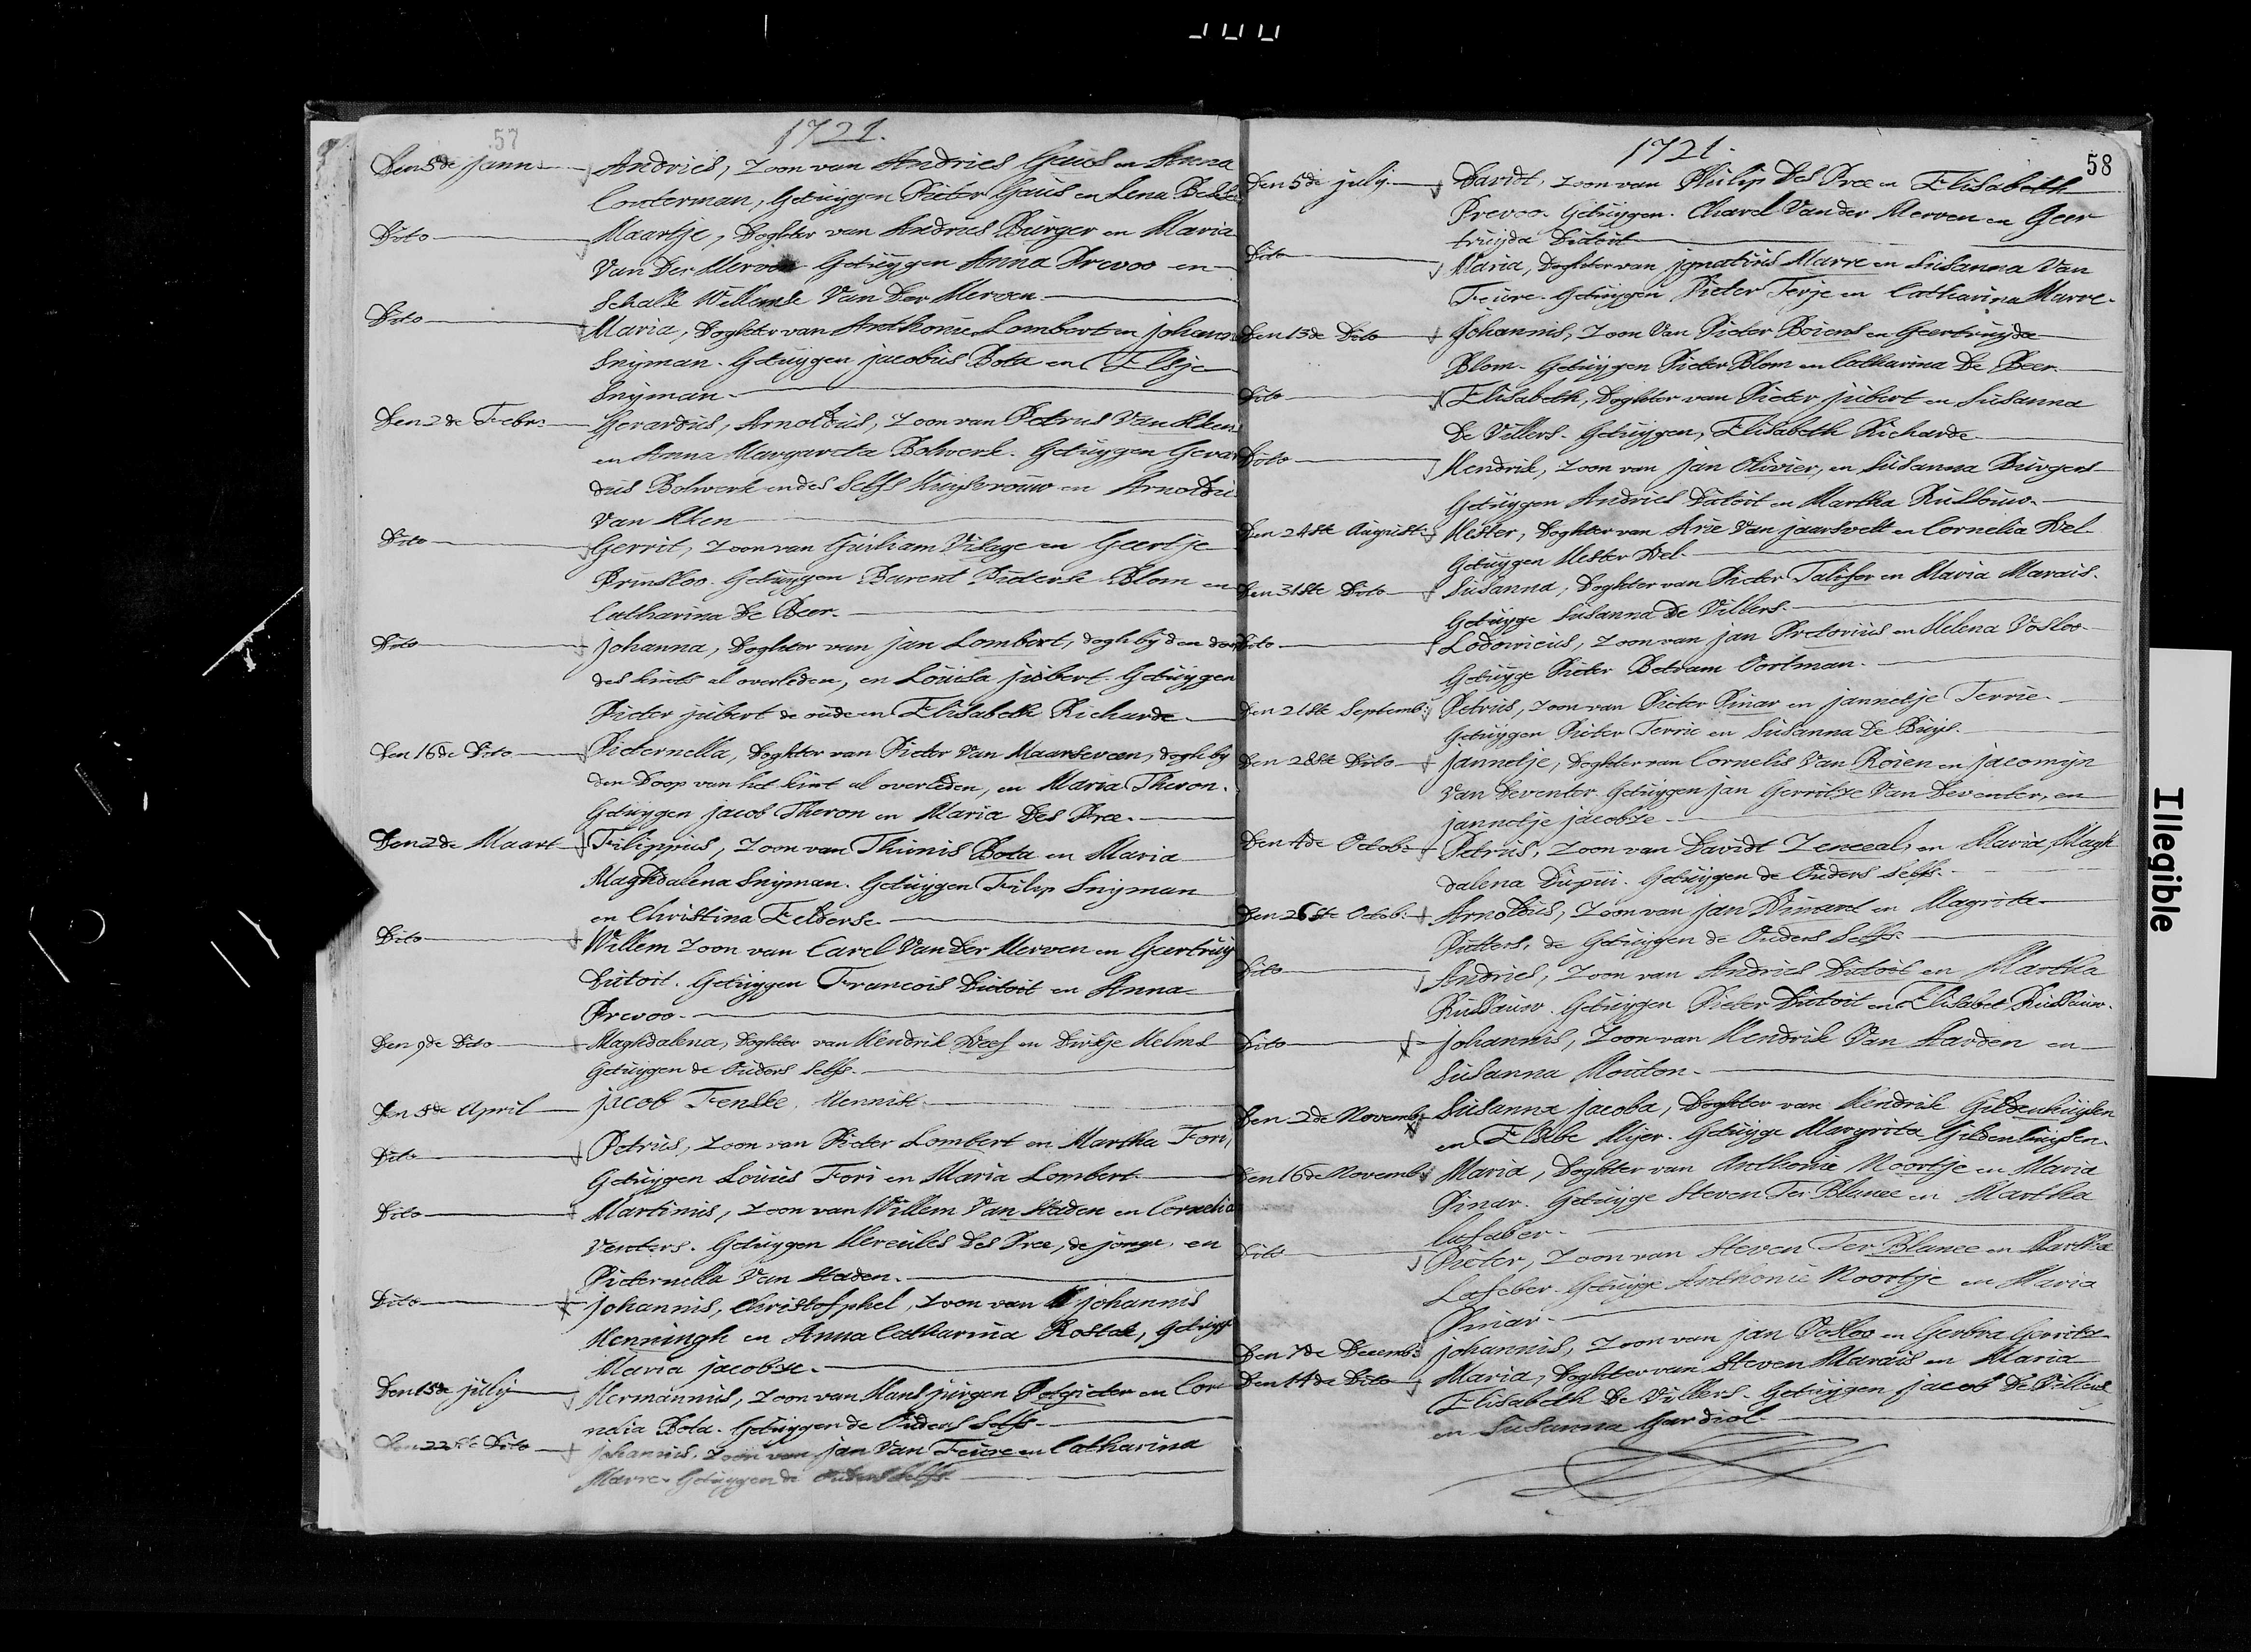 57
1721.
Den 5de Jann. Andries, Zoon van Andries Gaus en Anna
Conterman, Getuygen Pieter Gaus en Lena
Dito Maartje, Doghter van Andries Burger en Maria
Van Der Merven Getuygen Anna Prevoo en
Schalk Willemse Van Der Merven
Dito Maria, Doghter van Anthonie Lombert en Johanna
Snyman. Getuygen Jacobus Bota en Elsje
Snyman.
Den 2de Febr. Gerardus, Arnoldus, Zoon van Petrus Van Aken
en Anna Margareta Bolwerk. Getuygen Gerar
dus Bolwerk en des Selfs Huysvrouw en Arnoldus
Van Aken
Dito Gerrit, Zoon van Guiliam Visage en Geertje
Prinsloo. Getuygen Barent Pieterse Blom en
Catharina De Beer.
Dito Johanna, Doghter van Jan Lombert, dogh by den doop
des kints al overleden, en Louisa Jubert. Getuygen
Pieter Jubert de oude en Elisabeth Richarde
Den 16de Dito Pieternella, Doghter van Pieter Van Maarseveen, dogh by
den Doop van het kint al overleden, en Maria Theron.
Getuygen Jacob Theron en Maria Des Pree.
Den 2de Maart Filippus, Zoon van Thunis Bota en Maria
Maghdalena Snyman. Getuygen Filip Snyman
en Christina Felderse.
Dito Willem Zoon van Carel Van Der Merven en Geertruy
Dutoit. Getuygen Francois Dutoit en Anna
Prevoo.
Den 9de Dito Maghdalena, Doghter van Hendrik Neef en Dirkje Helms
Getuygen de Ouders Selfs.
Den 5de April Jacob Fenske. Mennist
Dito Petrus, Zoon van Pieter Lombert en Martha Fori,
Getuygen Louis Fori en Maria Lombert.
Dito Martinus, Zoon van Willem Van Staden en Cornelia
Venters. Getuygen Hercules Des Pree, de jonge, en
Pieternella Van Staden.
Dito Johannis, Christofphel, Zoon van Johannis
Henningh en Anna Catharina Rostok, Getuyge
Maria Jacobze.
Den 15de July Hermannus, Zoon van Hans Jurgen Potgieter en Cor
nelia Bota. Getuygen de Ouders Selfs.
Den 22ste Dito Johannis. Zoon van Jan Van Feure en Catharina
Marre. Getuygen de Ouders Selfs.
1721.
58
Den 5de July. Davidt, Zoon van Philip Des Pree en Elisabeth
Prevoo. Getuygen. Charel Van der Merven en Geer
truyda Dutoit
Dito Maria, Doghter van Jgnatius Marre en Susanna Van
Feure. Getuygen Pieter Terje en Catharina Marre.
Den 13de Dito Johannis, Zoon Van Pieter Boiens en Geertruyde
Blom. Getuygen Pieter Blom en Catharina De Beer.
Dito Elisabeth, Doghter van Pieter Jubert en Susanna
De Villers. Getuygen, Elisabeth Richarde
Dito Hendrik, Zoon van Jan Olivier, en Susanna Burgers
Getuygen Andries Dutoit en Martha Russouw.
Den 24ste August: Hester, Doghter van Arie Van Jaarsvelt en Cornelia Nel
Getuygen Hester Nel.
Den 31ste Dito Susanna, Doghter van Pieter Talifer en Maria Marais.
Getuyge Susanna De Villers.
Dito Lodovicus, Zoon van Jan Pretorius en Helena Vosloo
Getuyge Pieter Betram Oortman.
Den 21ste Septemb: Petrus, Zoon van Pieter Pinar en Jannetje Terrie.
Getuygen Pieter Terrie en Susanna De Buys.
Den 28ste Dito Jannetje, Doghter van Cornelis Van Roien en Jacomyn
Van Deventer. Getuygen Jan Gerritze Van Deventer, en
Jannetje Jacobze
Den 4de Octob: Petrus, Zoon van Davidt Zeneeal, en Maria, Magh
dalena Dupui. Getuygen de Ouders Selfs.
Den 26ste Octob: Arnoldus, Zoon van Jan Winant en Magrita
Putters, de Getuygen de Ouders Selfs.
Dito Andries, Zoon van Andries Dutoit en Martha
Russauw. Getuygen Pieter Dutoit en Elisabet Russauw.
Dito Johannis, Zoon van Hendrik Van Aarden en
Susanna Mouton.
Den 2de Novemb: Susanna Jacoba, Doghter van Hendrik Gildenhuysen
en Elsabe Myer. Getuyge Margrita Gildenhuysen.
Den 16de Novemb: Maria, Doghter van Anthonie Noortje en Maria
Pinar. Getuyge Steven Ter Blance en Martha
Lafeber.
Dito Pieter, Zoon van Steven Ter Blance en Martha
Lafeber. Getuyge Anthonie Noortje en Maria
Pinar.
Den 7de Decemb: Johannis, Zoon van Jan Vosloo en Gerbra Gerritz.
Den 14de Dito Maria, Doghter van Steven Marais en Maria
Elisabeth De Villers. Getuygen Jacob De Villers,
en Susanna Gardiol.
Illegible